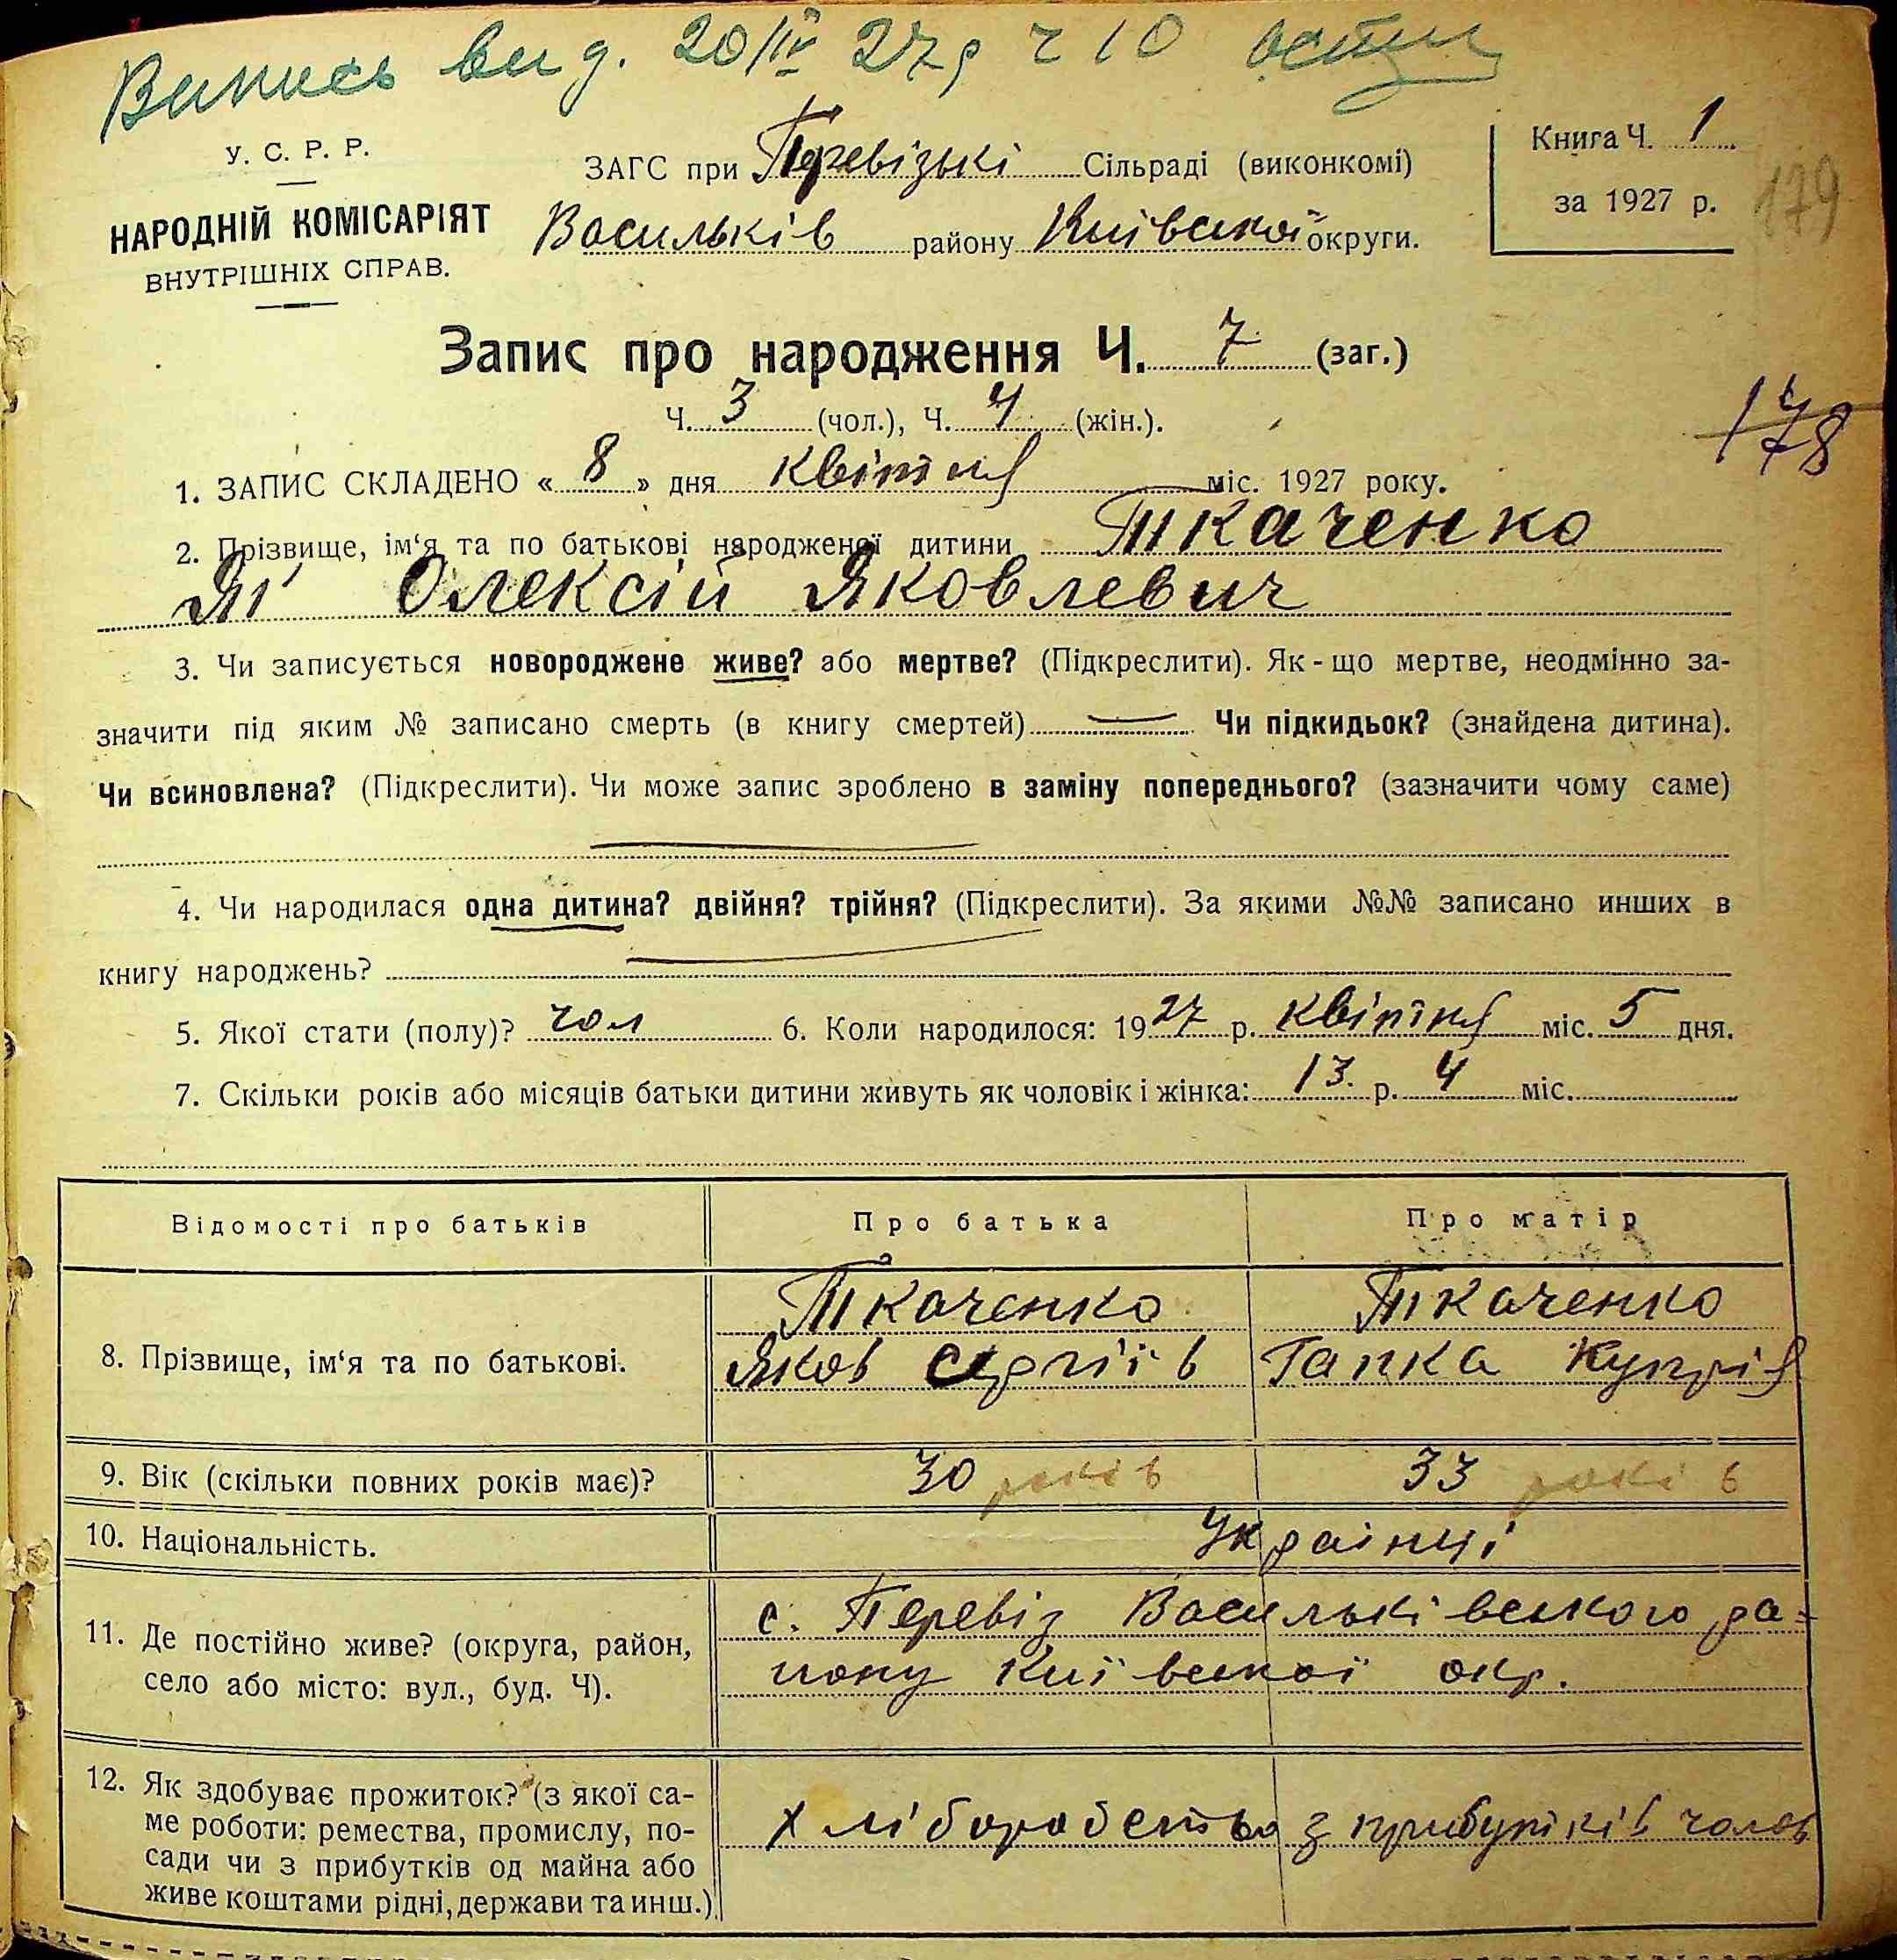 Випись вид. 20/IV 27 р ч 10
У. С. Р. Р.
НАРОДНІЙ КОМІСАРІЯТ
ВНУТРІШНІХ СПРАВ.
ЗАГС при Перевізькі Сільраді (виконкомі)
Васильків району Київської округи.
Книга Ч. 1
за 1927 р.
179
Запис про народження Ч. 7 (заг.)
Ч. 3 (чол.), Ч. 4 (жін.).
178
1. ЗАПИС СКЛАДЕНО « 8 » дня квітня міс. 1927 року.
2. Прізвище, ім‘я та по батькові народженої дитини Ткаченко
Олексій Яковлевич
3. Чи записується новороджене живе? або мертве? (Підкреслити). Як-що мертве, неодмінно за-
значити під яким № записано смерть (в книгу смертей) — Чи підкидьок? (знайдена дитина).
Чи всиновлена? (Підкреслити). Чи може запис зроблено в заміну попереднього? (зазначити чому саме)
4. Чи народилася одна дитина? двійня? трійня? (Підкреслити). За якими №№ записано инших в
книгу народжень?
5. Якої стати (полу)? чол 6. Коли народилося: 1927 р. квітня міс. 5 дня.
7. Скільки років або місяців батьки дитини живуть як чоловік і жінка: 13. р. 4 міс.
Відомості про батьків Про батька Про матір
Ткаченко Ткаченко
8. Прізвище, ім‘я та по батькові. Яков Сергіїв Гапка Купрія
9. Вік (скільки повних років має)? 30 років 33 років
10. Національність. Українці
11. Де постійно живе? (округа, район,
село або місто: вул., буд. Ч).
с. Перевіз Васильківського ра=
йону Київської окр.
12. Як здобуває прожиток? (з якої са-
ме роботи: ремества, промислу, по-
сади чи з прибутків од майна або
живе коштами рідні, держави та инш.)
хліборобство з прибутків чолов